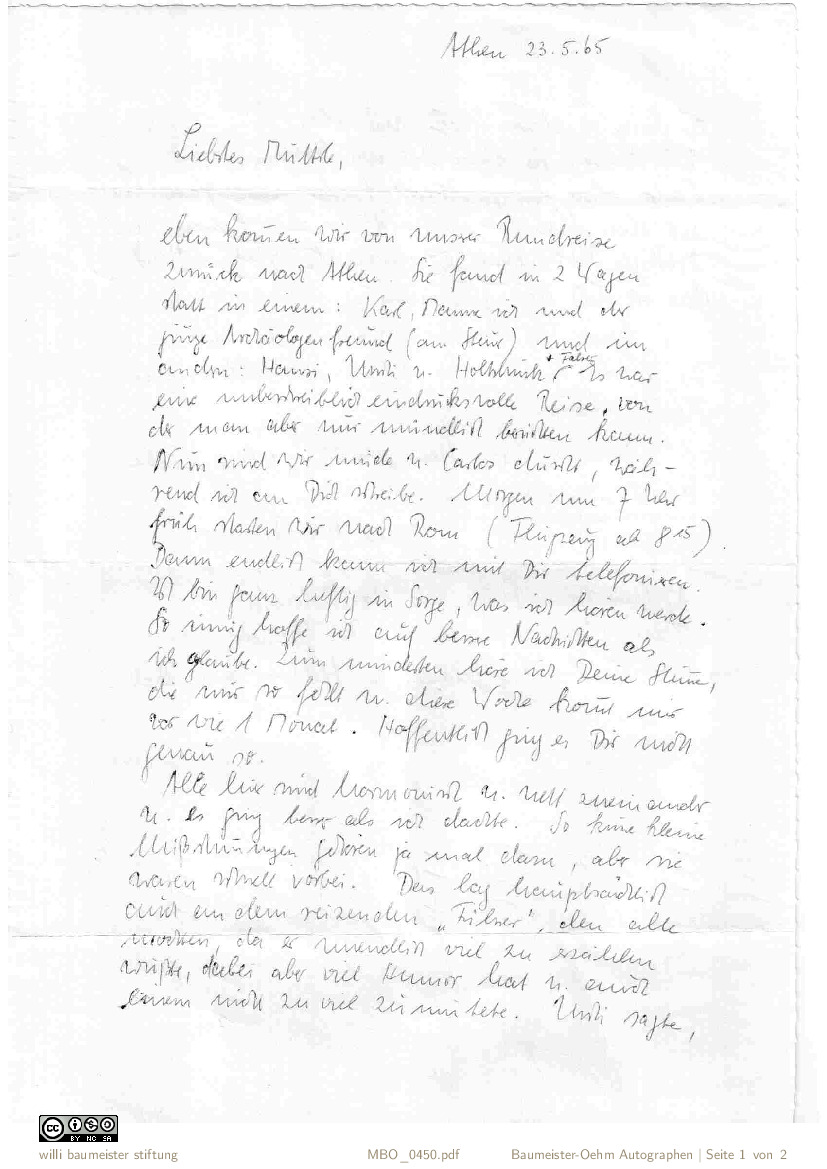 Athen 23.5.65
Liebstes Muttile,
eben kom̄en wir von unsrer Rundreise
zurück nach Athen. Sie fand in 2 Wagen
statt in einem: Karl, ich und der
junge Archäologenfreund (am Steur) und im
+ Führer
andern: Hansi, Uschi u. Holtzbrink. Es war
eine unbeschreiblich eindrucksvolle Reise, von
der man aber nur mündlich berichten kann.
Nun sind wir müde u. Carlos duscht, wäh-
rend ich an Dich schreibe. Morgen um 7 Uhr
früh starten wir nach Rom (Flugzeug ab 8 15).
Dann endlich kann ich mit Dir telefonieren.
Ich bin ganz heftig in Sorge, was ich hören werde.
So innig hoffe ich auf bessre Nachrichten als
ich glaube. Zum mindesten höre ich Deine Stim̄e,
die mir so fehlt u. diese Woche kom̄t mir
vor wie 1 Monat. Hoffentlich ging es Dir nicht
genau so.
Alle hier sind harmonisch u. nett zueinander
u. es ging besser als ich dachte. So kurze kleine
Mißstim̄ungen gehören ja mal dazu, aber sie
waren schnell vorbei. Das lag hauptsächlich
auch an dem reizenden „Führer", den alle
mochten, da er unendlich viel zu erzählen
wußte, dabei aber viel Humor hat u. auch
einem nicht zu viel zumutete. Uschi sagte,
CC BY NC SA
willi baumeister stiftung
MBO_0450.pdf
Baumeister-Oehm Autographen | Seite 1 von 2